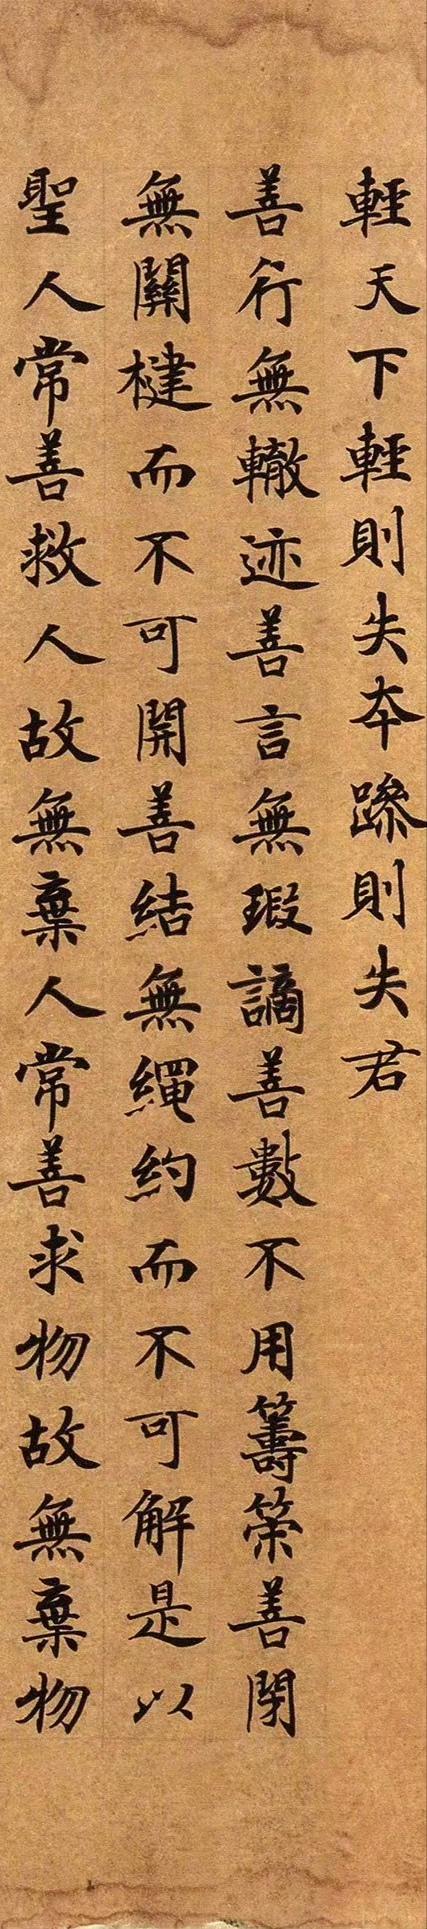 輕天下輕則失本躁則失君
善行無轍迹善言無瑕謫善數不用籌策善閉
無關楗而不可開善結無繩約而不可解是以
聖人常善救人故無棄人常善求物故無棄物